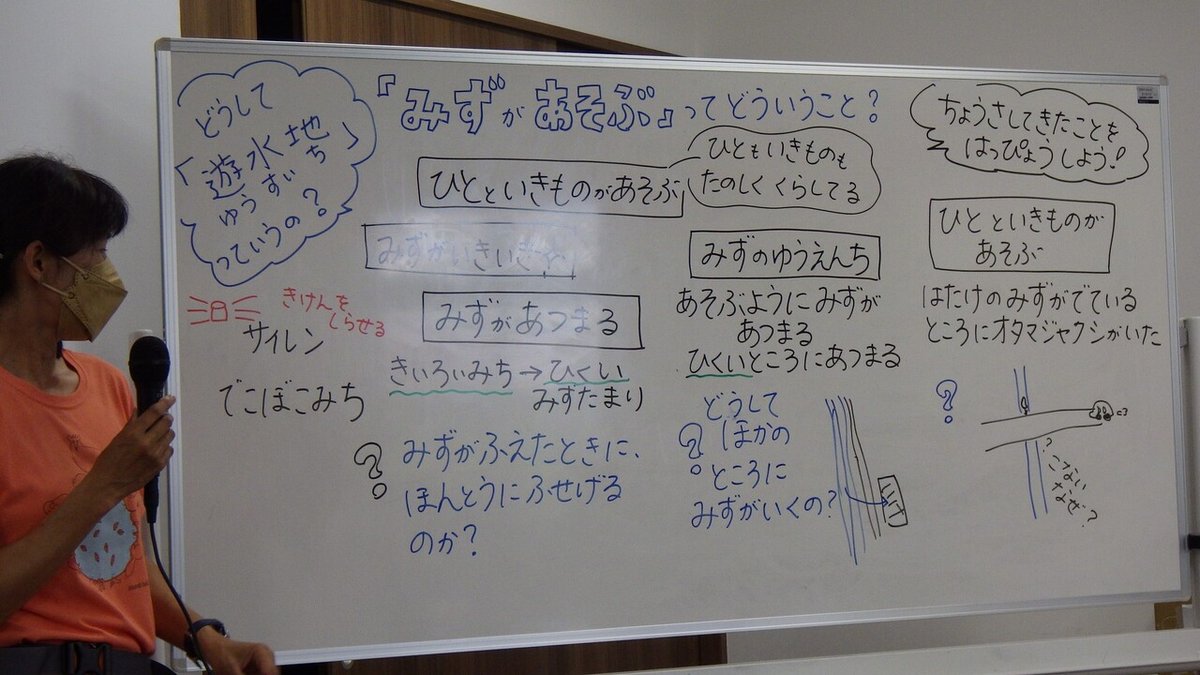 どうして
「遊水地」
ゆうすいち
っていうの?
『みずがあそぶ』ってどういうこと?
ちょうさしてきたことを
はっぴょうしよう!
ひとといきものがあそぶ
ひともいきものも
たのしくくらしてる
みずがいきいき
みずがあつまる
きいろいみち→ひくい
みずたまり
?
みずがふえたときに、
ほんとうにふせげる
のか?
きけんを
しらせる
サイレン
でこぼこみち
みずのゆうえんち
あそぶようにみずが
あつまる
ひくいところにあつまる
?
どうして
ほかの
ところに
みずがいくの?
ひとといきものが
あそぶ
はたけのみずがでている
ところにオタマジャクシがいた
?
?
いない
なぜ?